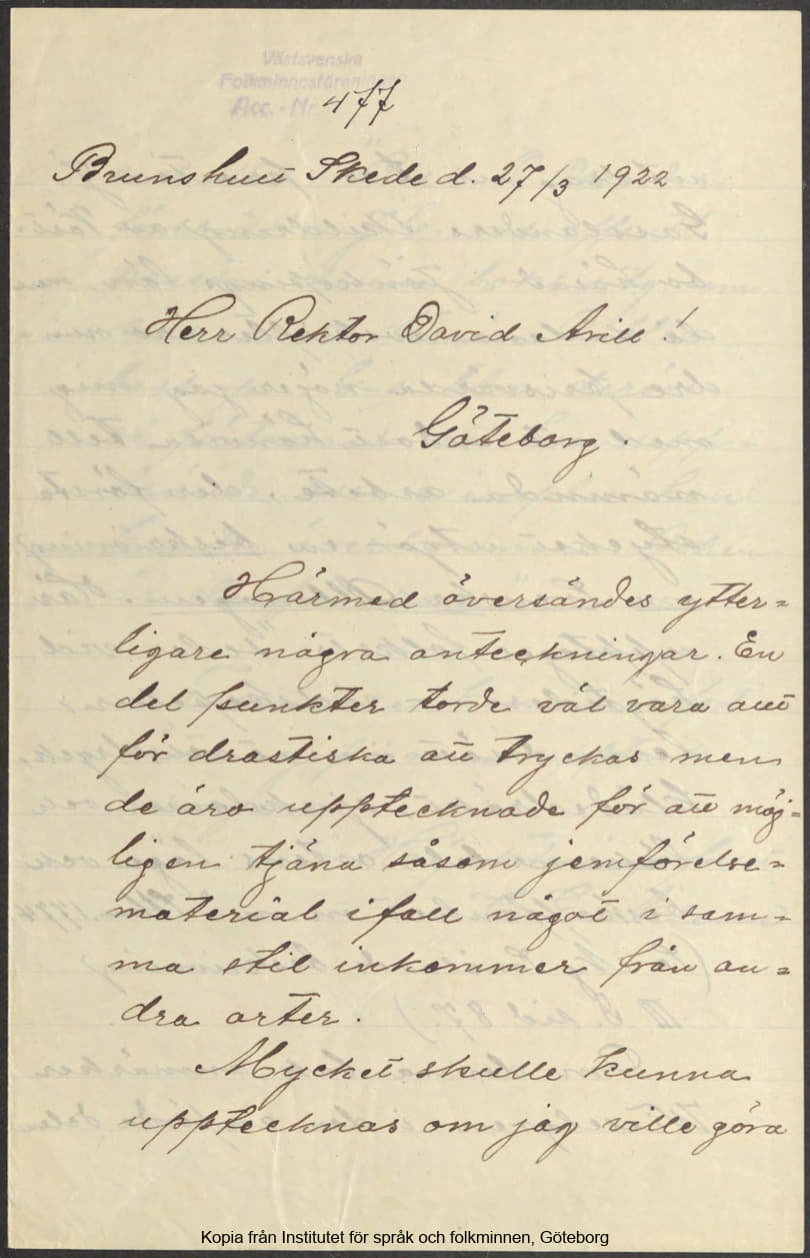 Västsvenska
Folkminnesföreningen
Acc. - Nr 477
Brunshult Skede d. 27/3 1922
Herr Rektor David Arill!
Göteborg.
Härmed översändes ytter=
ligare några anteckningar. En
del punkter torde väl vara allt
för drastiska att tryckas men
de äro upptecknade för att möj=
ligen tjäna såsom jemförelse=
material ifall något i sam=
ma stil inkommer från an=
dra orter.
Mycket skulle kunna
upptecknas om jag ville göra
Kopia från Institutet för språk och folkminnen, Göteborg